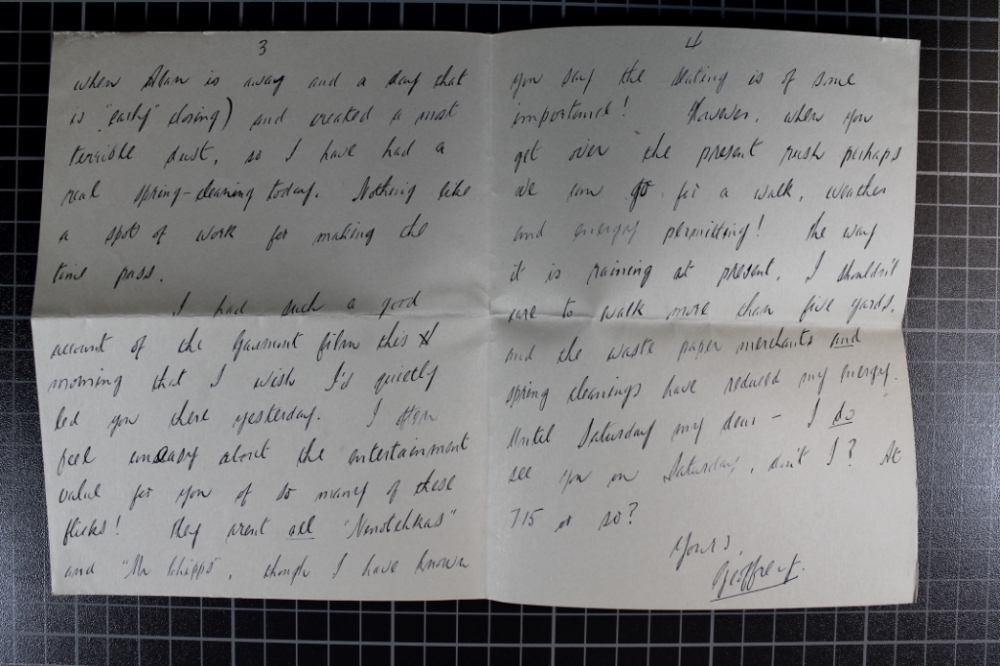 3
when Alan is away and a day that
is "early" closing) and created a most
terrible dust, so I have had a
real spring-cleaning today. Nothing like
a spot of work for making the
time pass.
I had such a good
account of the Gaumont film this
morning that I wish I'd quietly
led you there yesterday. I often
feel uneasy about the entertainment
value for you of so many of these
flicks! They aren't all "Ninotchkas"
and "Mr Chipps", though I have known
4
you say the seating is of some
importance! However, when you
get over the present rush perhaps
we can go for a walk, weather
and energy permitting! The way
it is raining at present, I shouldn't
care to walk more than five yards,
and the waste paper merchants and
spring cleanings have reduced my energy.
Until Saturday my dear - I do
see you on Saturday, don't I? At
7.15 or so?
Yours,
Geoffrey.